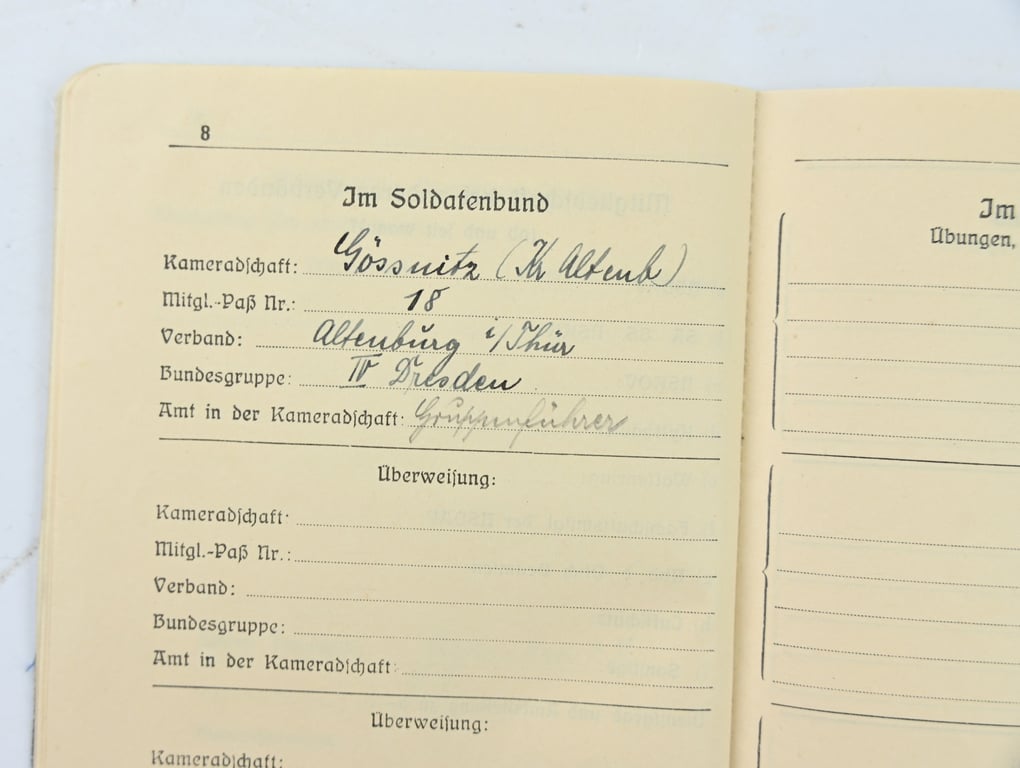 8
Im Soldatenbund
Kameradschaft: Gössnitz (Kr Altenb)
Mitgl.-Paß Nr.: 18
Verband: Altenburg i/Thür
Bundesgruppe: IV Dresden
Amt in der Kameradschaft: Gruppenführer
Überweisung:
Kameradschaft:
Mitgl.-Paß Nr.:
Verband:
Bundesgruppe:
Amt in der Kameradschaft:
Überweisung:
Kameradschaft:
Im
Übungen,